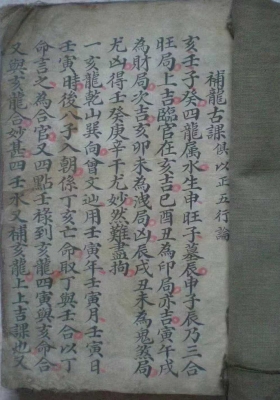 補龍古課俱以正五行論
亥壬子癸四龍属水生申旺子墓辰申子辰乃三合
旺局上吉臨官在亥吉巳酉丑為印局亦吉寅午戌
為財局次吉亥卯未為洩局凶辰戌丑未為鬼煞局
尤凶得壬癸庚辛干尤妙然難盡拘
一亥龍乾山巽向曾文辿用壬寅年壬寅月壬寅日
壬寅時後八子入朝係丁亥亡命取丁與壬合以丁
命言之為合官又四點壬祿到亥龍四寅與亥命合
又與亥龍合妙甚四壬水又補亥龍上上吉課也又